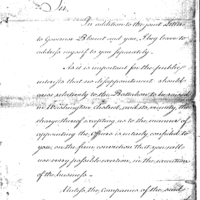 Sir,
In addition to the joint Letter
to Governor Blount and you, I beg leave to
address myself to you separately.
As it is important for the public
interest that no disappointment should
arise relatively to the Battalion to be raised
in Washington District, and its vicinity, the
charge thereof excepting as to the manner of
appointing the Officers is entirely confided to
you, in the firm conviction that you will
use every possible exertion, in the execution
of the business.
the Companies of the said